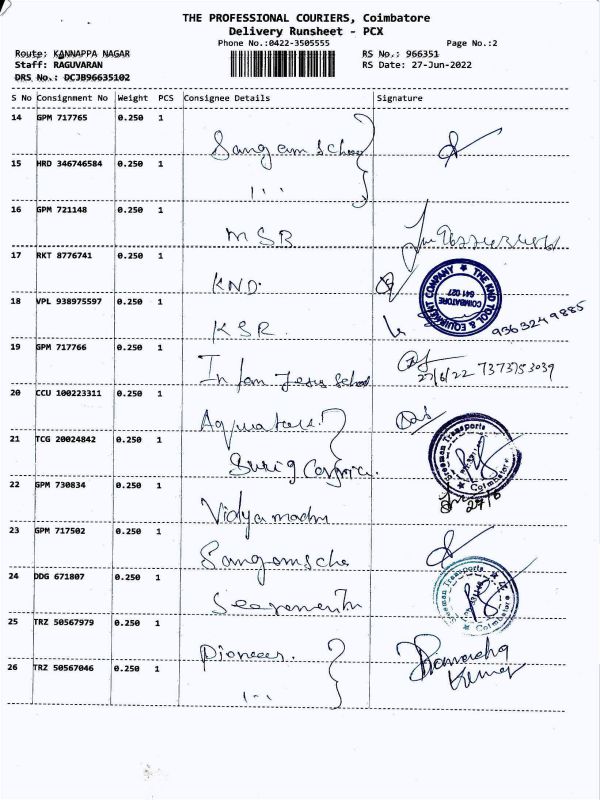 THE PROFESSIONAL COURIERS, Coimbatore
Delivery Runsheet - PCX
Phone No.:0422-3505555 Page No.:2
Route: KANNAPPA NAGAR RS No.: 966351
Staff: RAGUVARAN RS Date: 27-Jun-2022
DRS No.: DCJB96635102
S No Consignment No Weight PCS Consignee Details Signature
14 GPM 717765 0.250 1
15 HRD 346746584 0.250 1
16 GPM 721148 0.250 1 MSR
17 RKT 8776741 0.250 1 KND.
THE KND TOOL & EQUIPMENT COMPANY
COIMBATORE
641 027
18 VPL 938975597 0.250 1 KSR. 9363249885
19 GPM 717766 0.250 1 Jesus School
27/6/22 7373753039
20 CCU 100223311 0.250 1
21 TCG 20024842 0.250 1
Sreeman Transports
Coimbatore
22 GPM 730834 0.250 1 27/6
23 GPM 717502 0.250 1
24 DDG 671807 0.250 1
Sreeman Transports
Coimbatore
25 TRZ 50567979 0.250 1 Pioneer.
26 TRZ 50567046 0.250 1 Kumar